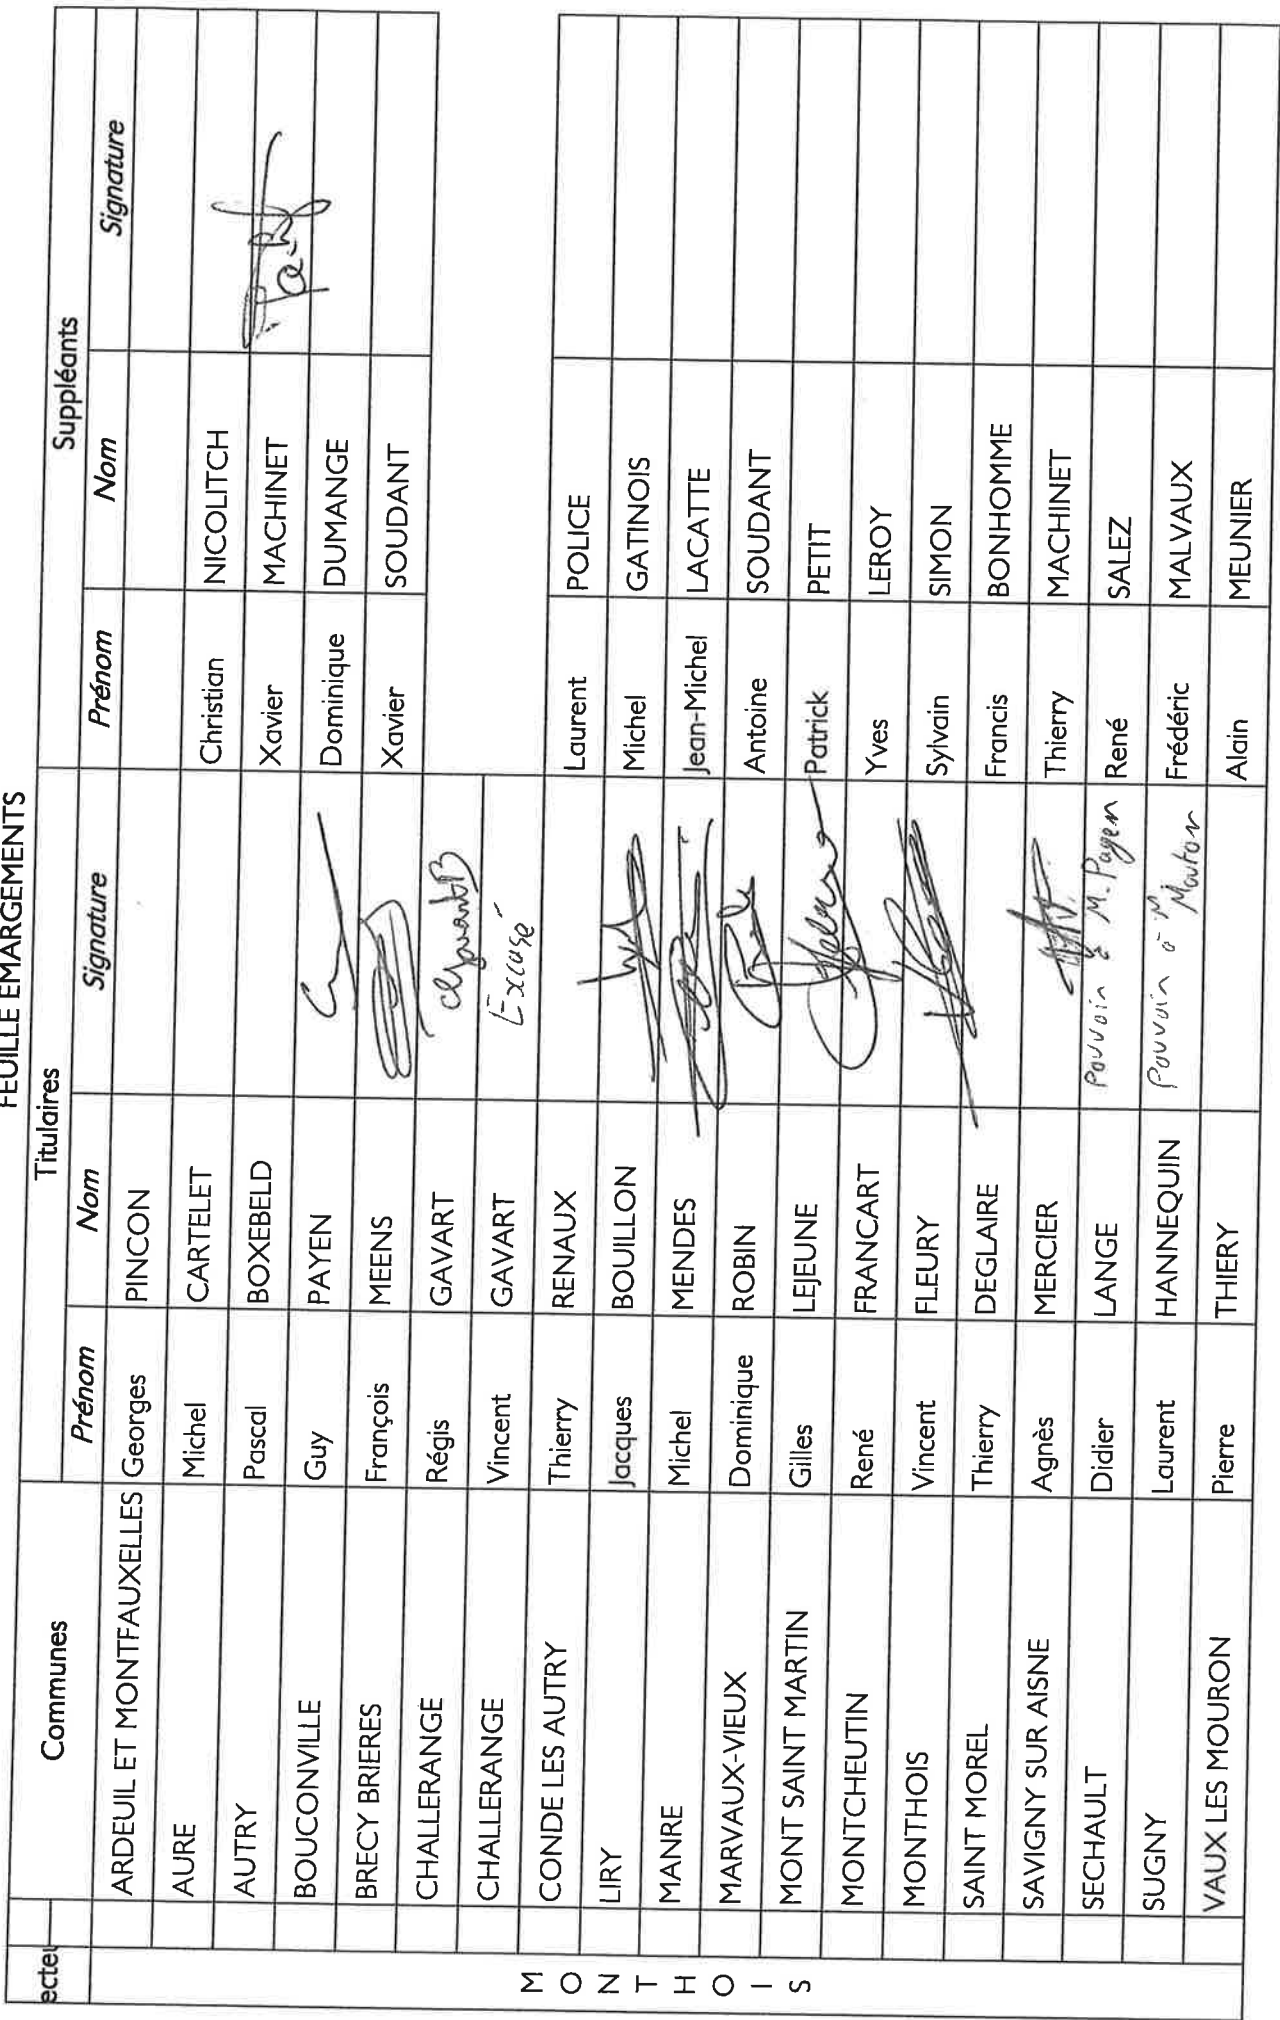 FEUILLE EMARGEMENTS
Titulaires Suppléants
ecteu Communes Prénom Nom Signature Prénom Nom Signature
MONTHOIS
ARDEUIL ET MONTFAUXELLES Georges PINCON
AURE Michel CARTELET Christian NICOLITCH
AUTRY Pascal BOXEBELD Xavier MACHINET
BOUCONVILLE Guy PAYEN Dominique DUMANGE
BRECY BRIERES François MEENS Xavier SOUDANT
CHALLERANGE Régis GAVART
CHALLERANGE Vincent GAVART Excusé
CONDE LES AUTRY Thierry RENAUX Laurent POLICE
LIRY Jacques BOUILLON Michel GATINOIS
MANRE Michel MENDES Jean-Michel LACATTE
MARVAUX-VIEUX Dominique ROBIN Antoine SOUDANT
MONT SAINT MARTIN Gilles LEJEUNE Patrick PETIT
MONTCHEUTIN René FRANCART Yves LEROY
MONTHOIS Vincent FLEURY Sylvain SIMON
SAINT MOREL Thierry DEGLAIRE Francis BONHOMME
SAVIGNY SUR AISNE Agnès MERCIER Thierry MACHINET
SECHAULT Didier LANGE Pouvoir à M. Payen René SALEZ
SUGNY Laurent HANNEQUIN Pouvoir à M Mouton Frédéric MALVAUX
VAUX LES MOURON Pierre THIERY Alain MEUNIER